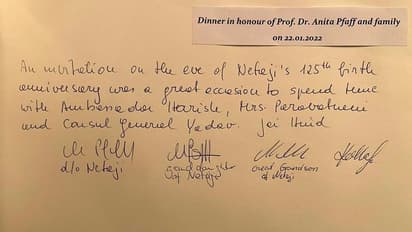 Dinner in honour of Prof. Dr. Anita Pfaff and family
on 22.01.2022
An invitation on the eve of Netaji's 125th birth
anniversary was a great occasion to spend time
with Ambassador Harish, Mrs. Parvatheni
and Consul General Yadav. Jai Hind
d/o Netaji
grand daughter
of Netaji
Great Grandson
of Netaji